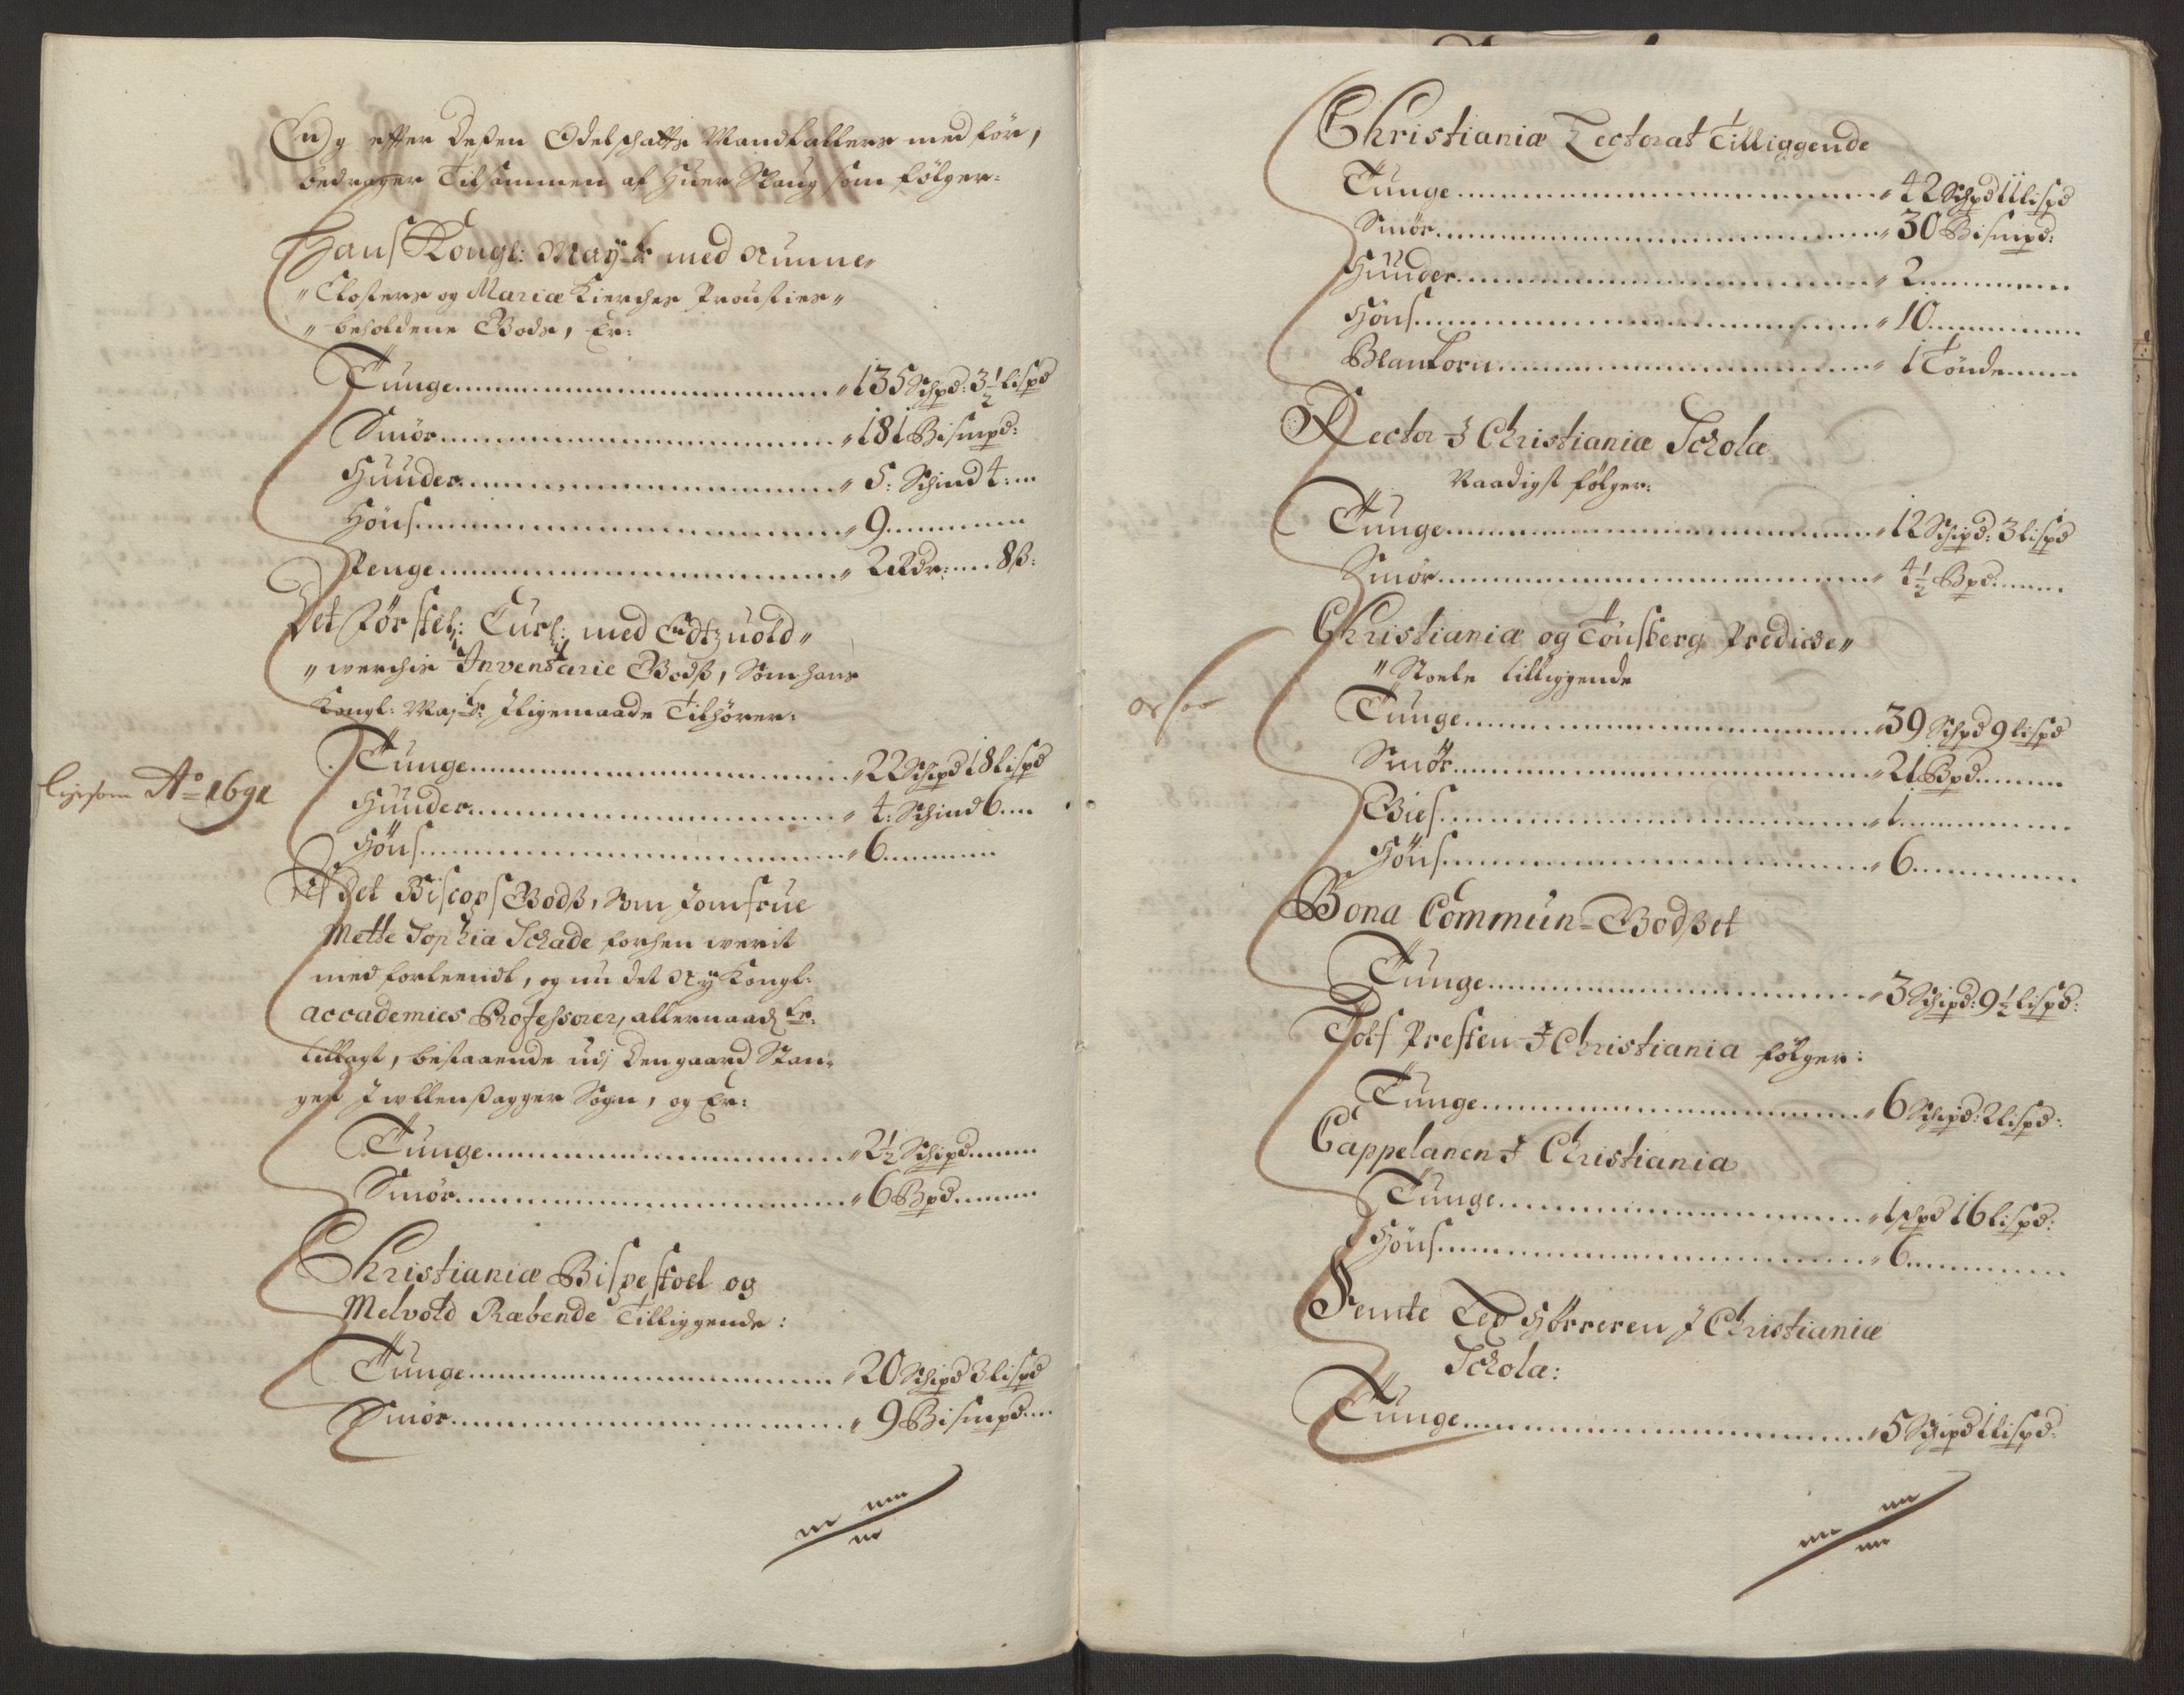 Och efter desen Odelschatts Mandtallers medför,
bedrager Tilsammen af huer Slaug som følger:
Hans Kongl: Mayts med Nunne,,
,,Closters og Mariæ Kierches Proustier,,
,,beholdene Godz, Er:
Tunge ,, 135 Schpd: 3½ lispd
Smør ,, 181 Bismpd:
Huuder ,, 5: Schind 4:
Høns ,, 9
Penge ,, 2 Rdr: 8 ß:
Det førstel: med Edtzuold,,
,,werchis Inventarie Godß, Som hans
Kongl: Mayts: Iligemaade Tilhører:
Tunge ,, 22 Schipd 18 lispd
ligesom Ao 1691
Huuder ,, 4: Schind 6
Høns ,, 6
Af det Biscops Godß, Som Jomfrue
Mette Sophia Schade forhen werit
med forleendt, og nu det Ny Kongl:
Accademies Professorer, allernaad. Er
tillagt, bestaaende udj den gaard Stan,
ger I ullensagger Sogn, og Er:
Tunge ,, 2½ Schipd
Smør ,, 6 Bpd
Christianiæ Bispestoel og
Melvold Ræbende Tilliggende:
Tunge ,, 20 Schipd 3 lispd
Smør ,, 9 Bismpd
Christianiæ Lectorat Tilliggende
Tunge ,, 42 Schpd 11 lispd
Smør ,, 30 Bismpd:
Huuder ,, 2
Høns ,, 10
Blankorn ,, 1 Tønde
Rector I Christianiæ Schola
Naadigst følger:
Tunge ,, 12 Schipd: 3 lispd
Smør ,, 4½ Bpd
Christianiæ og Tønsberg Predicke,,
,,Stoele tilliggende
Tunge ,, 39 Schpd 9 lispd
Smør ,, 21 Bpd
Gies ,, 1
Høns ,, 6
Bona Commun=Godßet
Tunge ,, 3 Schipd: 9½ lispd:
Sols Presten I Christiania følger:
Tunge ,, 6 Schipd: 2 lispd:
Cappelanen I Christiania
Tunge ,, 1 schpd 16 lispd:
Høns ,, 6
Femte Lex Hörreren I Christianiæ
Schola:
Tunge ,, 5 Schipd 1 lispd: